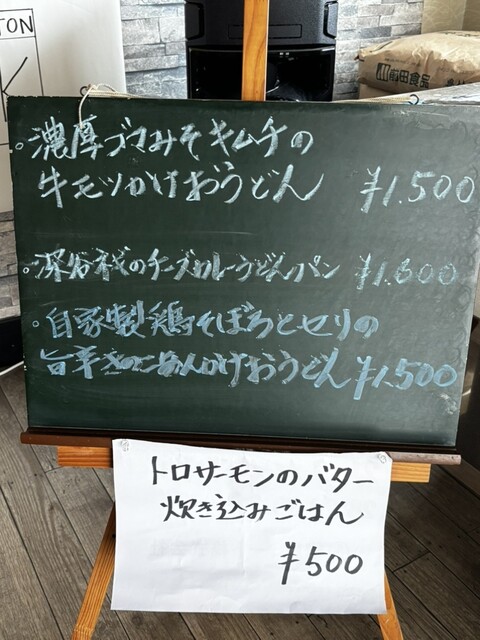 TON
K
前田食品
。濃厚ゴマみそキムチの
牛モツかけおうどん ¥1.500
。深谷ネギのチーズカレーうどん,パン ¥1.600
。自家製鶏そぼろとセリの
旨辛きのこあんかけおうどん ¥1.500
トロサーモンのバター
炊き込みごはん
¥500